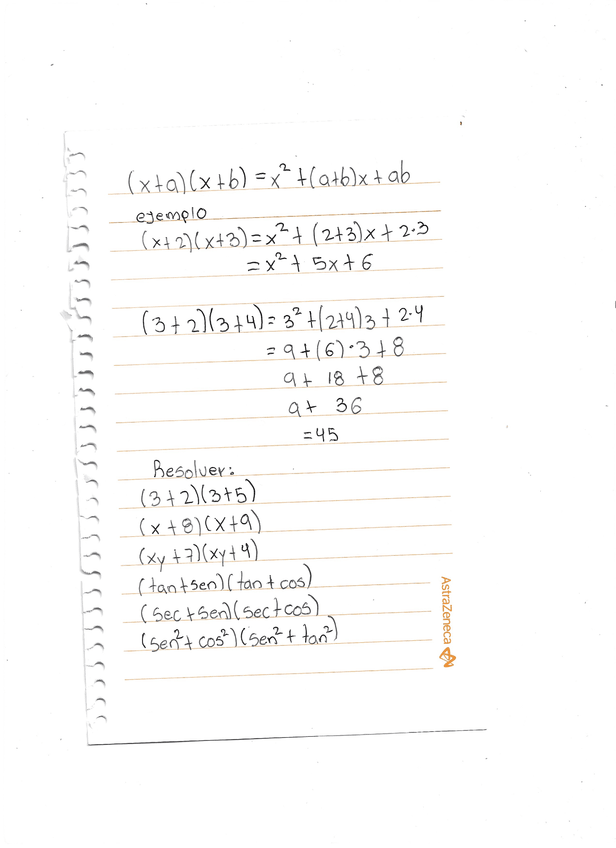 (x+a)(x+b)=x²+(a+b)x+ab
ejemplo
(x+2)(x+3)=x²+(2+3)x+2·3
=x²+5x+6
(3+2)(3+4)=3²+(2+4)3+2·4
=9+(6)·3+8
9+18+8
9+36
=45
Resolver:
(3+2)(3+5)
(x+8)(x+9)
(xy+7)(xy+4)
(tan+sen)(tan+cos)
(sec+sen)(sec+cos)
(sen²+cos²)(sen²+tan²)
AstraZeneca